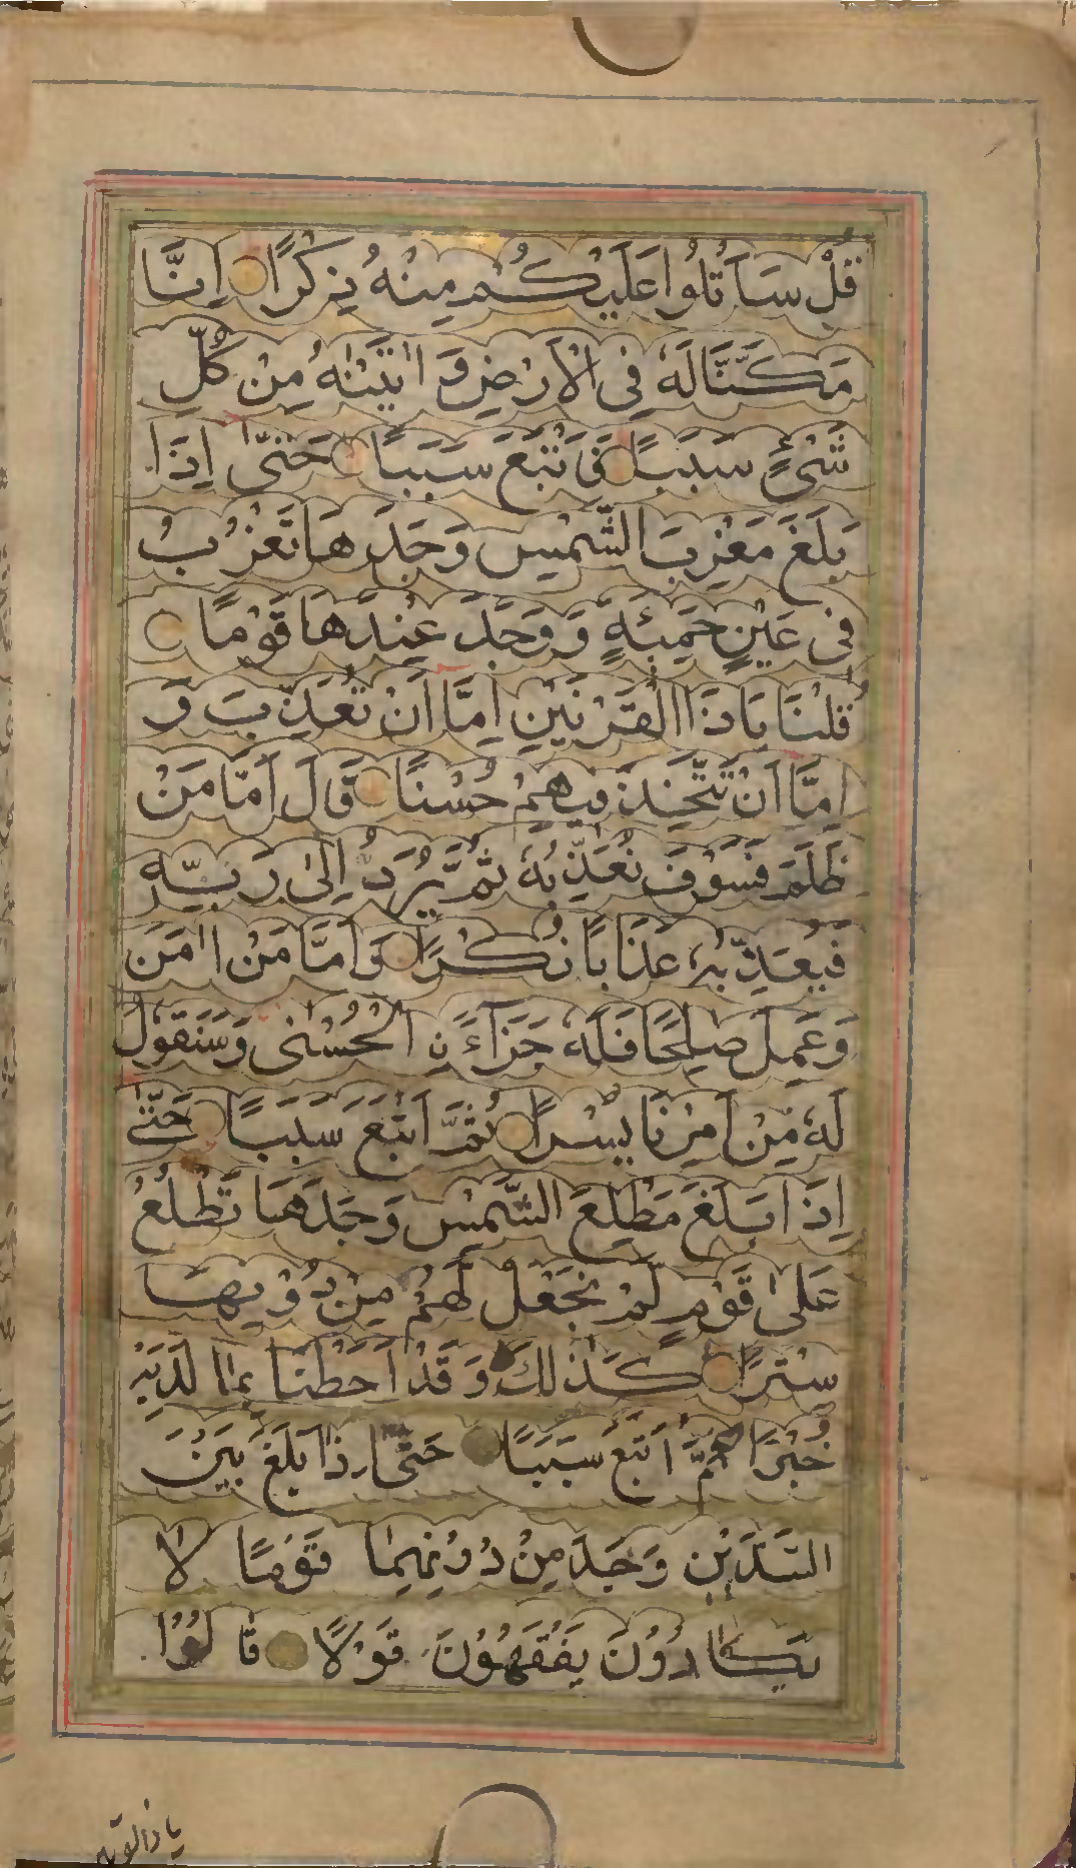 قُلْ سَاَتْلُوا عَلَيْكُمْ مِنْهُ ذِكْرًا اِنَّا
مَكَّنَّا لَهٗ فِى الْاَرْضِ وَ اٰتَيْنٰهُ مِنْ كُلِّ
شَىْءٍ سَبَبًا فَاَتْبَعَ سَبَبًا حَتّٰى اِذَا
بَلَغَ مَغْرِبَ الشَّمْسِ وَجَدَهَا تَغْرُبُ
فِى عَيْنٍ حَمِئَةٍ وَوَجَدَ عِنْدَهَا قَوْمًا
قُلْنَا يَا ذَا الْقَرْنَيْنِ اِمَّا اَنْ تُعَذِّبَ وَ
اِمَّا اَنْ تَتَّخِذَ فِيهِمْ حُسْنًا قَالَ اَمَّا مَنْ
ظَلَمَ فَسَوْفَ نُعَذِّبُهٗ ثُمَّ يُرَدُّ اِلىٰ رَبِّهٖ
فَيُعَذِّبُهٗ عَذَابًا نُكْرًا وَ اَمَّا مَنْ اٰمَنَ
وَعَمِلَ صٰلِحًا فَلَهٗ جَزَآءَ نِ الْحُسْنٰى وَسَنَقُوْلُ
لَهٗ مِنْ اَمْرِنَا يُسْرًا ثُمَّ اَتْبَعَ سَبَبًا حَتّٰى
اِذَا بَلَغَ مَطْلِعَ الشَّمْسِ وَجَدَهَا تَطْلُعُ
عَلىٰ قَوْمٍ لَّمْ نَجْعَلْ لَهُمْ مِنْ دُوْنِهَا
سِتْرًا كَذٰلِكَ وَقَدْ اَحَطْنَا بِمَا لَدَيْهِ
خُبْرًا ثُمَّ اَتْبَعَ سَبَبًا حَتّٰى اِذَا بَلَغَ بَيْنَ
السَّدَّيْنِ وَجَدَ مِنْ دُوْنِهِمَا قَوْمًا لَا
يَكَادُوْنَ يَفْقَهُوْنَ قَوْلًا قَالُوْا
يا ذا القرنين